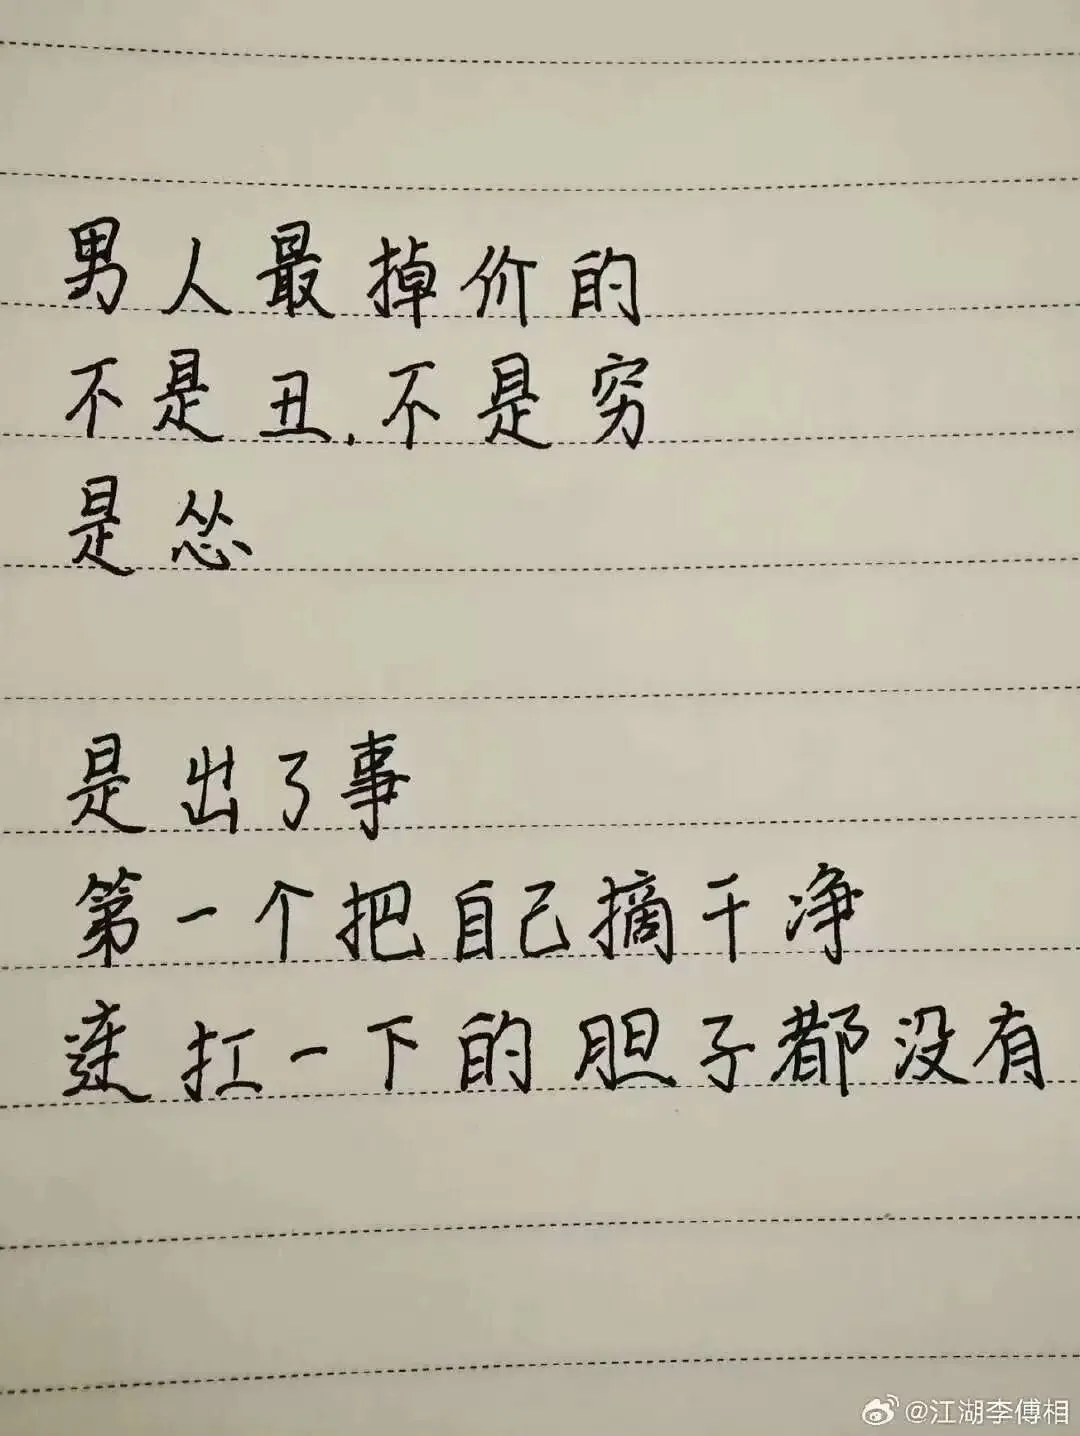 男人最掉价的
不是丑,不是穷
是怂
是出了事
第一个把自己摘干净
连扛一下的胆子都没有
@江湖李傅相